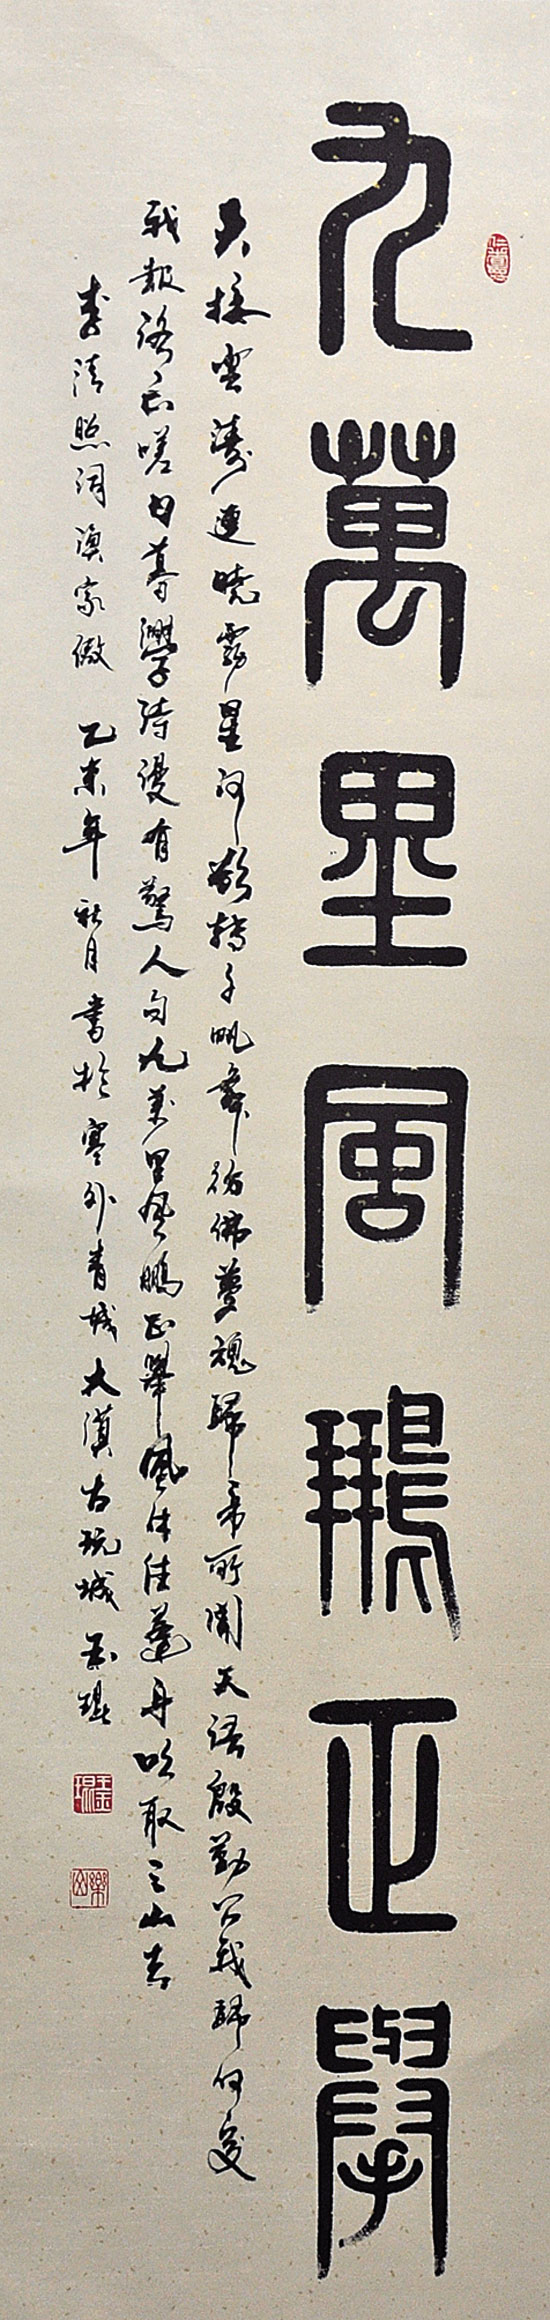 九萬里風鵬正舉
天接雲濤連曉霧星河欲轉千帆舞彷佛夢魂歸帝所聞天語殷勤问我歸何處
我報路長嗟日暮學詩謾有驚人句九萬里風鵬正舉風休住蓬舟吹取三山去
李清照詞漁家傲 乙未年秋月書於塞外青城大漠古玩城玉琨